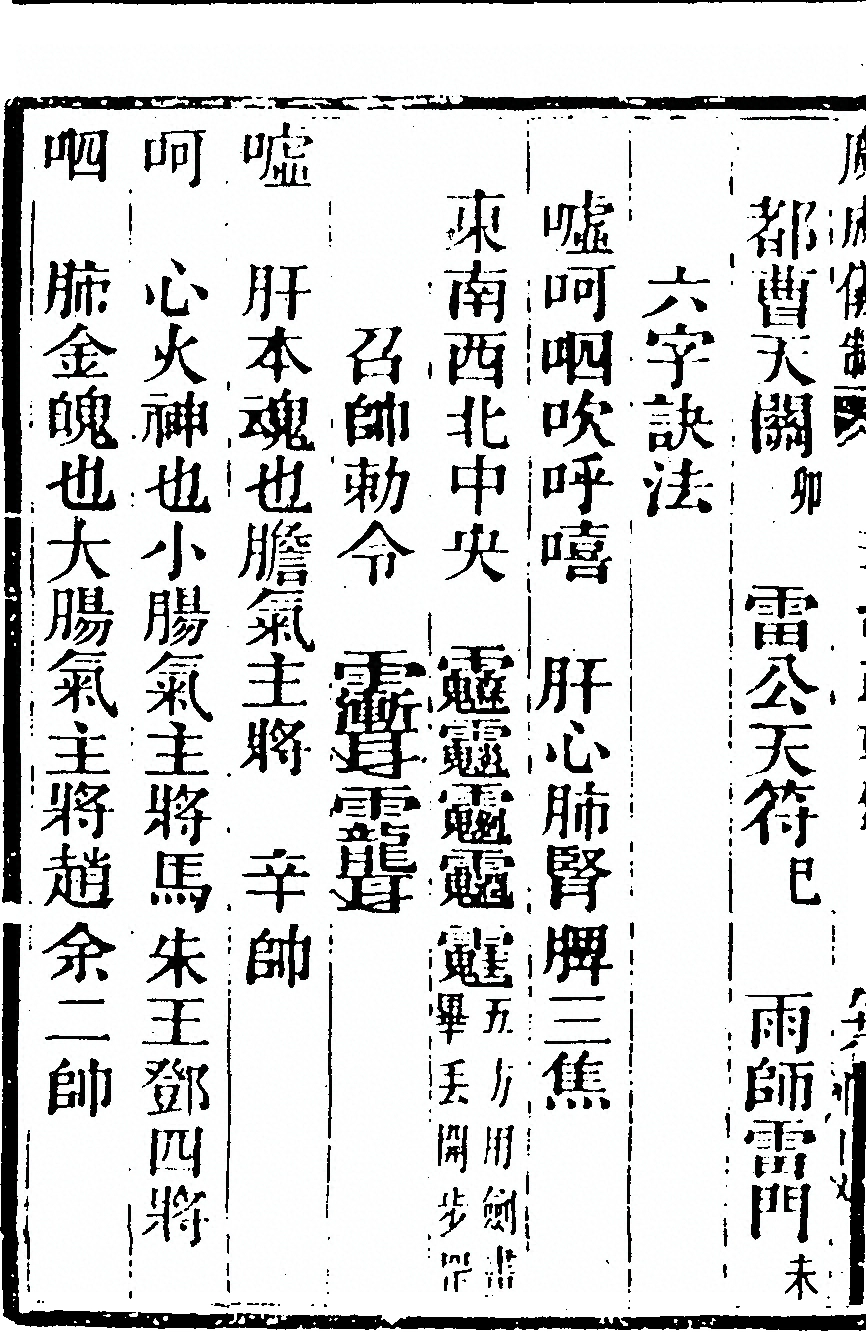 都曹天關卯 雷公天符巳 雨師雷門未
六字訣法
噓呵呬吹呼嘻 肝心肺腎脾三焦
東南西北中央 五方用劍書畢丟開步罡
召帥勅令
噓 肝本魂也膽氣主將 辛帥
呵 心火神也小腸氣主將馬朱王鄧四將
呬 肺金魄也大腸氣主將趙余二帥